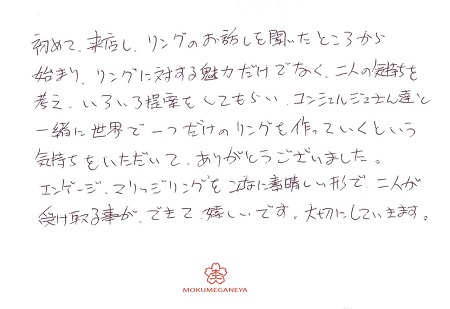 初めて、来店し、リングのお話しを聞いたところから
始まり、リングに対する魅力だけでなく、二人の気持ちを
考え、いろいろ提案をしてもらい、コンシェルジュさん達と
一緒に世界で一つだけのリングを作っていくという
気持ちをいただいて、ありがとうございました。
エンゲージ、マリッジリングをこんなに素晴しい形で、二人が
受け取る事が、できて、嬉しいです。大切にしていきます。
MOKUMEGANEYA